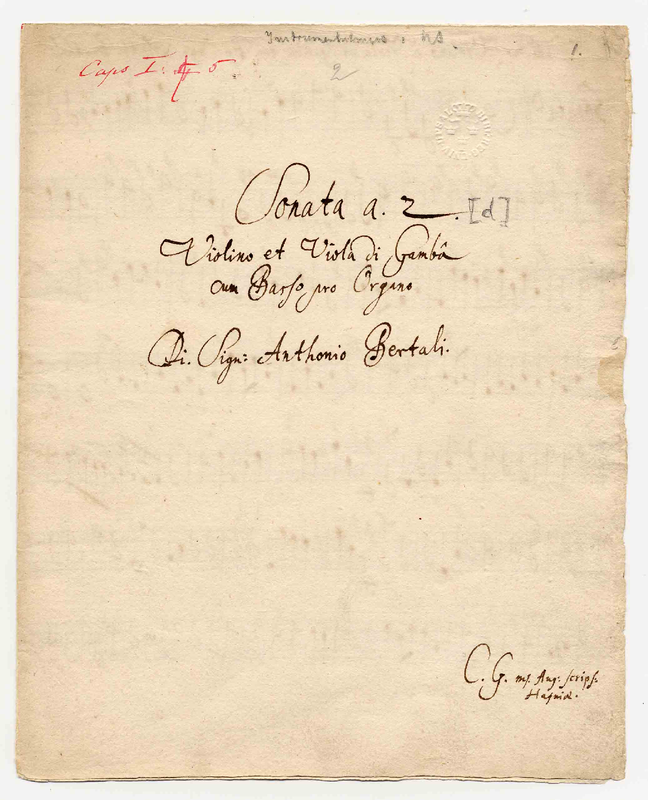 Instrumentalmus. i hs.
1.
Caps I: 4 5
2
Sonata a. 2. [d]
Violino et Viola di Gambâ
cum Basso pro Organo
Di. Sign: Anthonio Bertali.
C. G. mp. Aug: scrips.
Hafniæ.